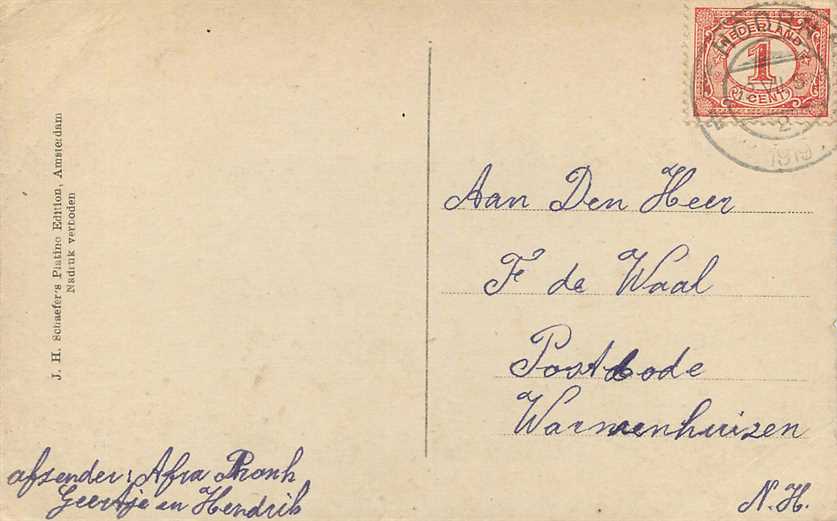 NEDERLAND
1
1 CENT
1919
Aan Den Heer
F de Waal
Postbode
Warmenhuizen
N.H.
afzender: Afra Pronk
Geertje en Hendrik
J. H. Schaefer's Platino Edition, Amsterdam
Nadruk verboden